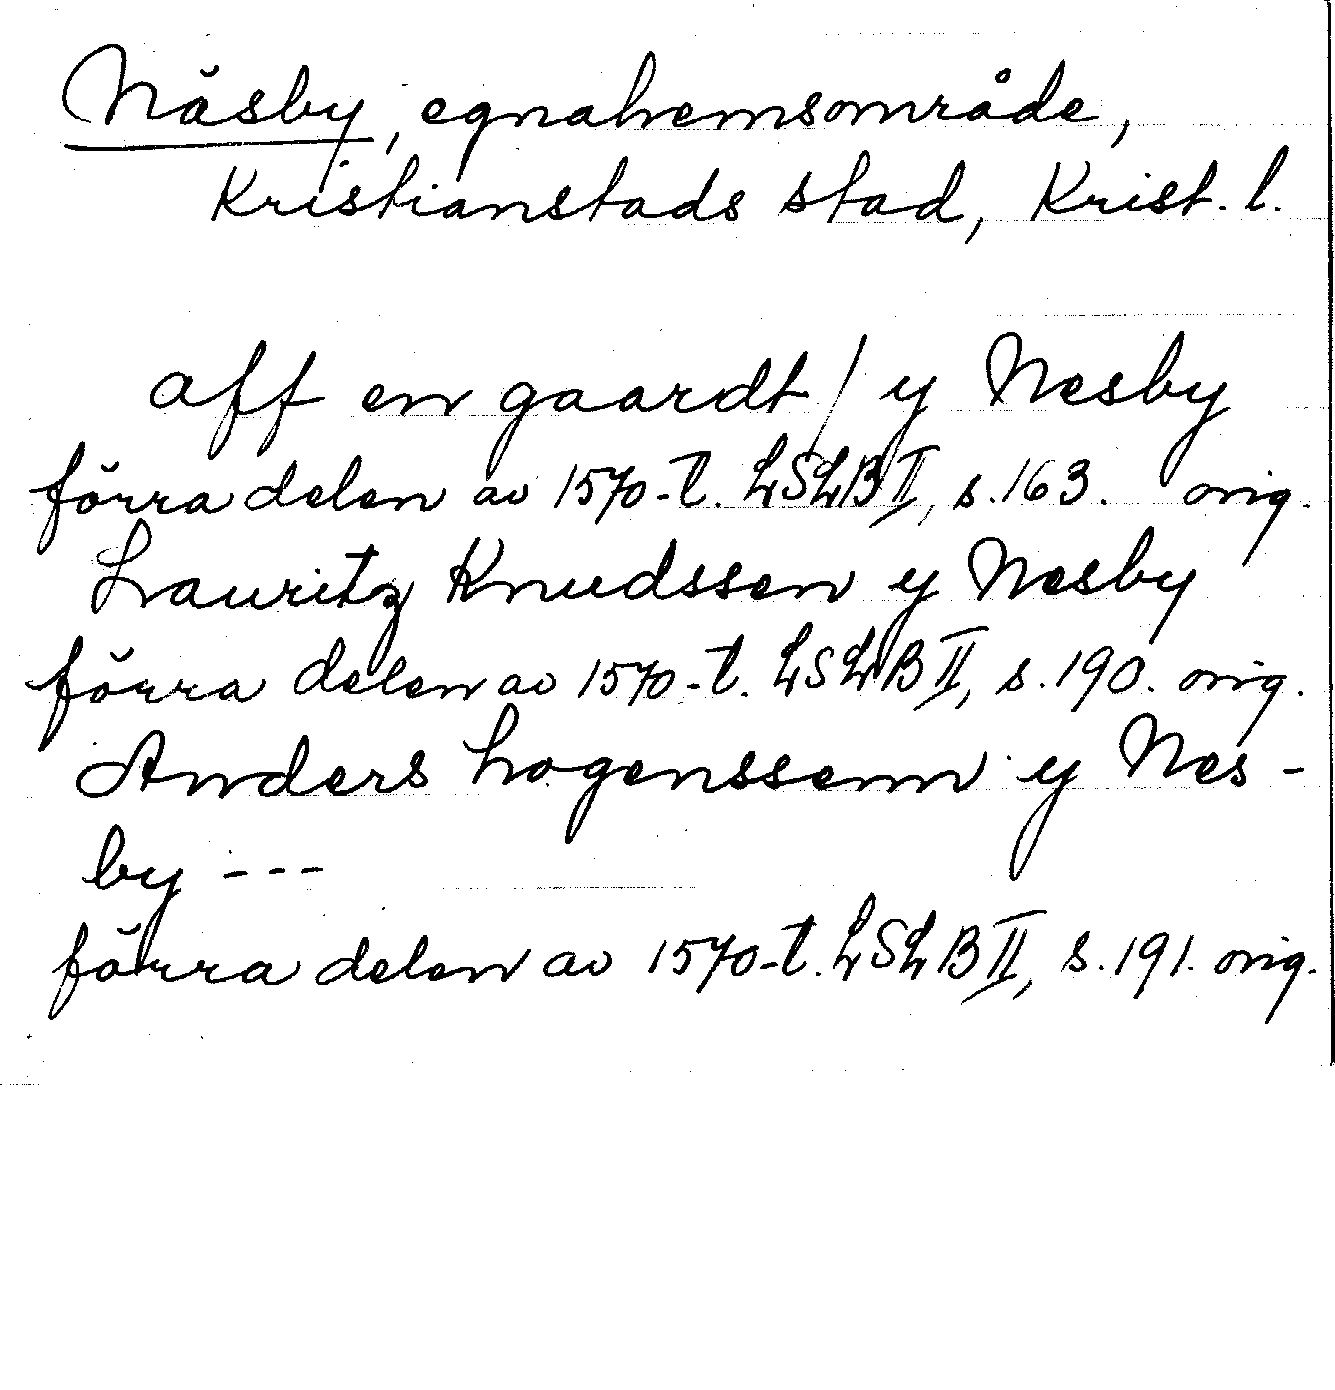 Näsby, egnahemsområde,
Kristianstads stad, Krist. l.
aff en gaardt / y Nesby
förra delen av 1570-t. LSLB II, s. 163. orig.
Lauritz Knudssen y Nesby
förra delen av 1570-t. LSLB II, s. 190. orig.
Anders Logenssenn y Nes-
by ---
förra delen av 1570-t. LSLB II, s. 191. orig.